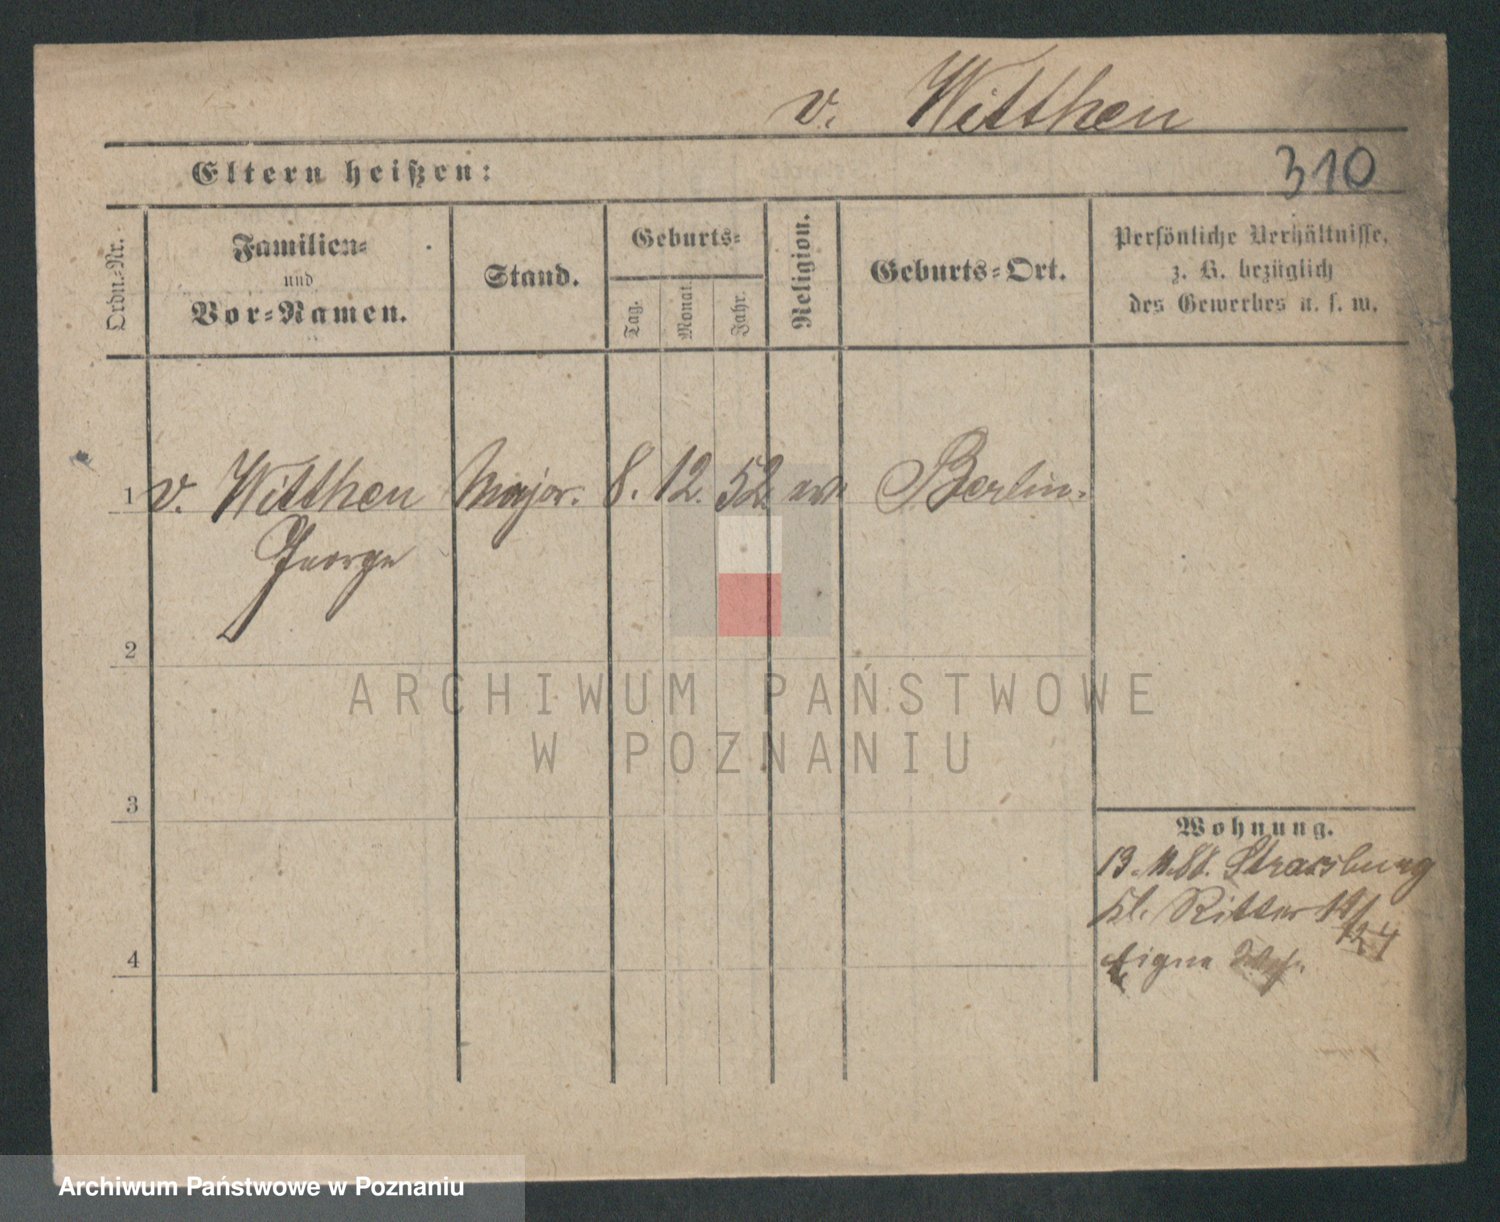 v. Witthen
Eltern heißen:
310
Ordn.-Nr.
Familien-
und
Vor-Namen.
Stand.
Geburts-
Tag.
Monat.
Jahr.
Religion.
Geburts-Ort.
Persönliche Verhältnisse,
z. B. bezüglich
des Gewerbes u. s. w.
1 v. Witthen Major. 8. 12. 52 Berlin.
George
2
3
4
Wohnung.
Strassburg
Kl. Ritter
ARCHIWUM PAŃSTWOWE
W POZNANIU
Archiwum Państwowe w Poznaniu